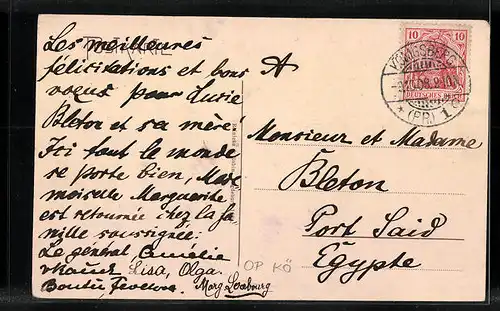 POSTKARTE
Les meilleures
félicitations et bons
voeux pour Lucie
Bleton et sa mère
Ici tout le monde
se porte bien, Made
moiselle Marguerite
est retournée chez la fa
mille soussignée:
Le général, Amélie
Lisa, Olga.
Marg
A
Monsieur et Madame
Bleton
Port Said
Égypte
OP KÖ
10 10
DEUTSCHES REICH
KÖNIGSBERG
(PR) 1